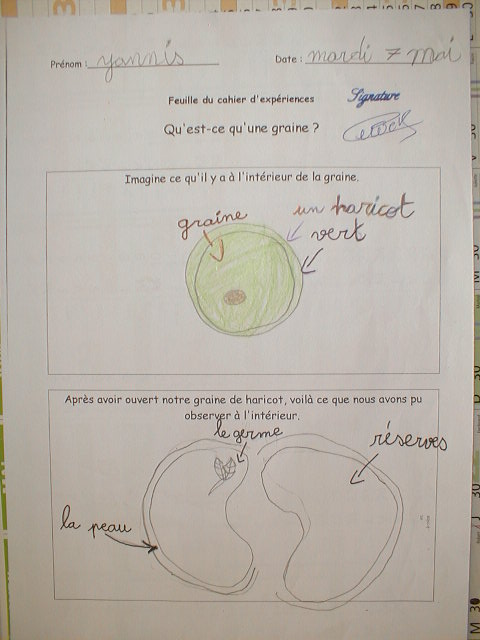 Prénom : yannis Date : mardi 7 mai
Feuille du cahier d'expériences Signature
Qu'est-ce qu'une graine ?
Imagine ce qu'il y a à l'intérieur de la graine.
graine un haricot
vert
Après avoir ouvert notre graine de haricot, voilà ce que nous avons pu
observer à l'intérieur.
le germe
réserves
la peau